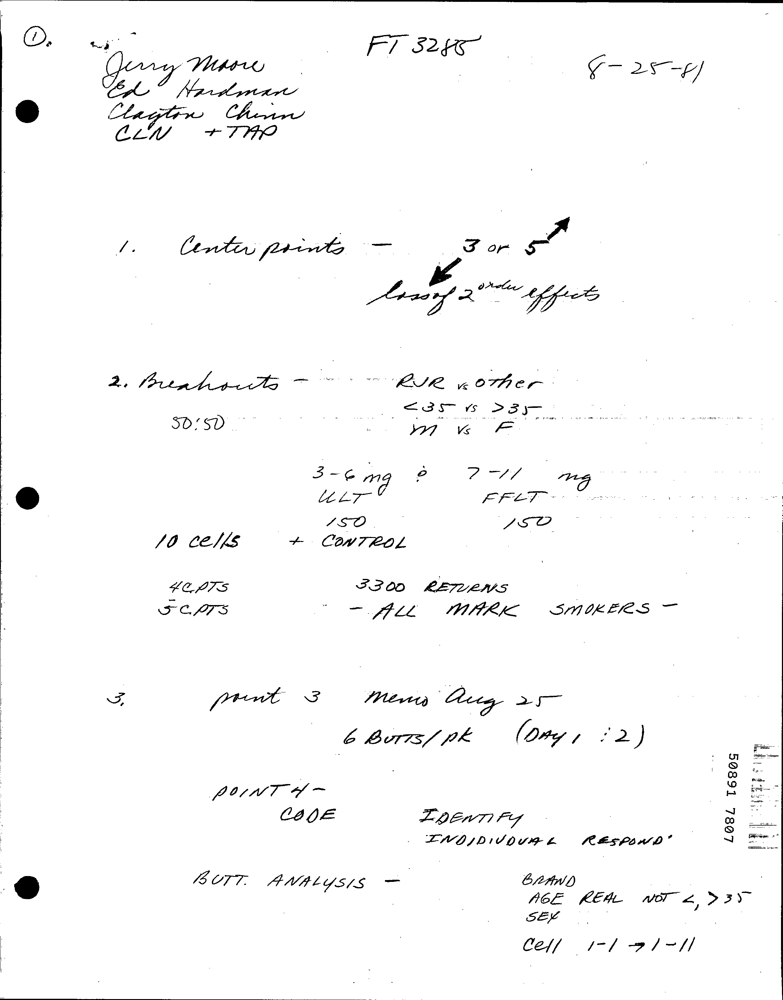 ①.
FT 3285
8-25-81
Jerry Moore
Ed Hardman
Clayton Chinn
CLN + TAP
1. Center points - 3 or 5
loss of 2 order effects
2. Breakouts - RJR vs other
<35 vs >35
50:50
M vs F
3-6 mg 7-11 mg
ULT FFLT
150 150
10 cells + CONTROL
4C.PTS 3300 RETURNS
5C.PTS - ALL MARK SMOKERS -
3. point 3 memo Aug 25
6 BUTTS/PK (DAY 1 : 2)
POINT 4 -
CODE IDENTIFY
INDIDIVDUAL RESPOND.
BUTT. ANALYSIS - BRAND
AGE REAL NOT <, >35
SEX
Cell 1-1 → 1-11
50891 7807